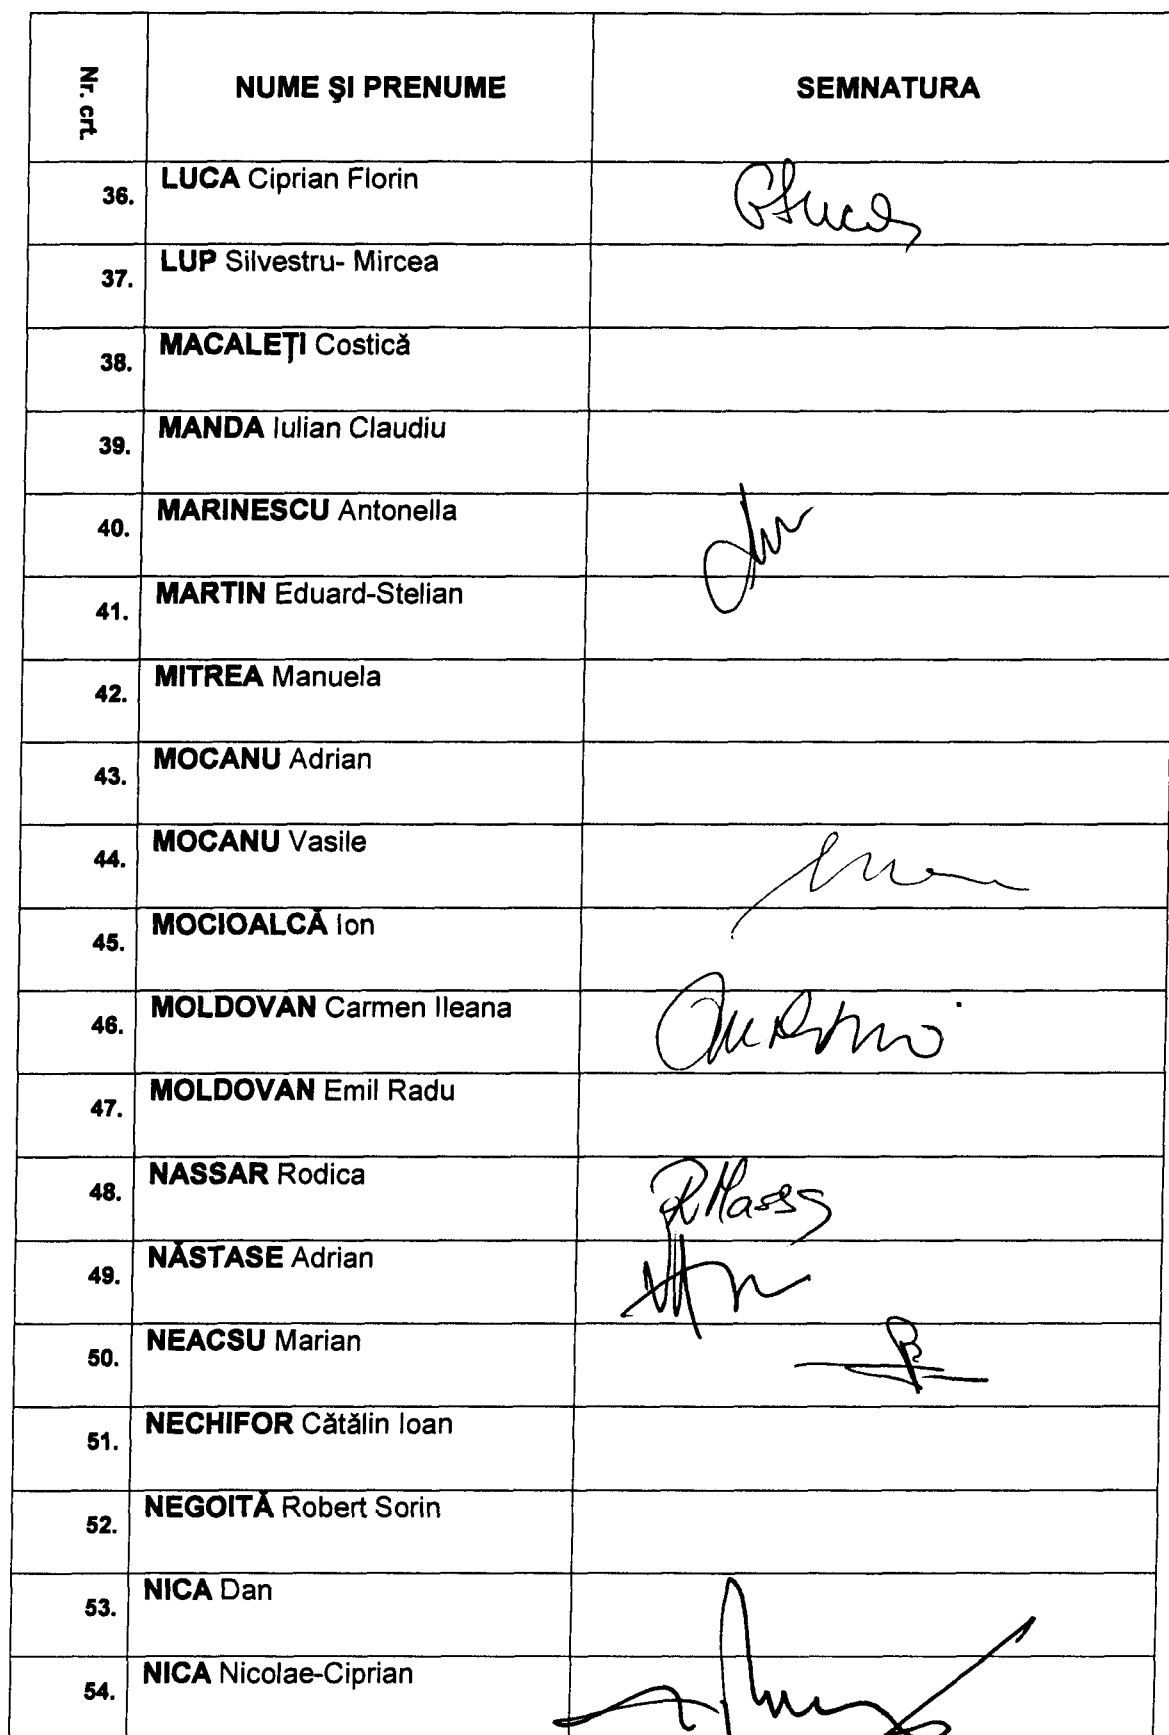 Nr. crt. NUME ŞI PRENUME SEMNATURA
36. LUCA Ciprian Florin
37. LUP Silvestru- Mircea
38. MACALEŢI Costică
39. MANDA Iulian Claudiu
40. MARINESCU Antonella
41. MARTIN Eduard-Stelian
42. MITREA Manuela
43. MOCANU Adrian
44. MOCANU Vasile
45. MOCIOALCĂ Ion
46. MOLDOVAN Carmen Ileana
47. MOLDOVAN Emil Radu
48. NASSAR Rodica
49. NĂSTASE Adrian
50. NEACSU Marian
51. NECHIFOR Cătălin Ioan
52. NEGOITĂ Robert Sorin
53. NICA Dan
54. NICA Nicolae-Ciprian